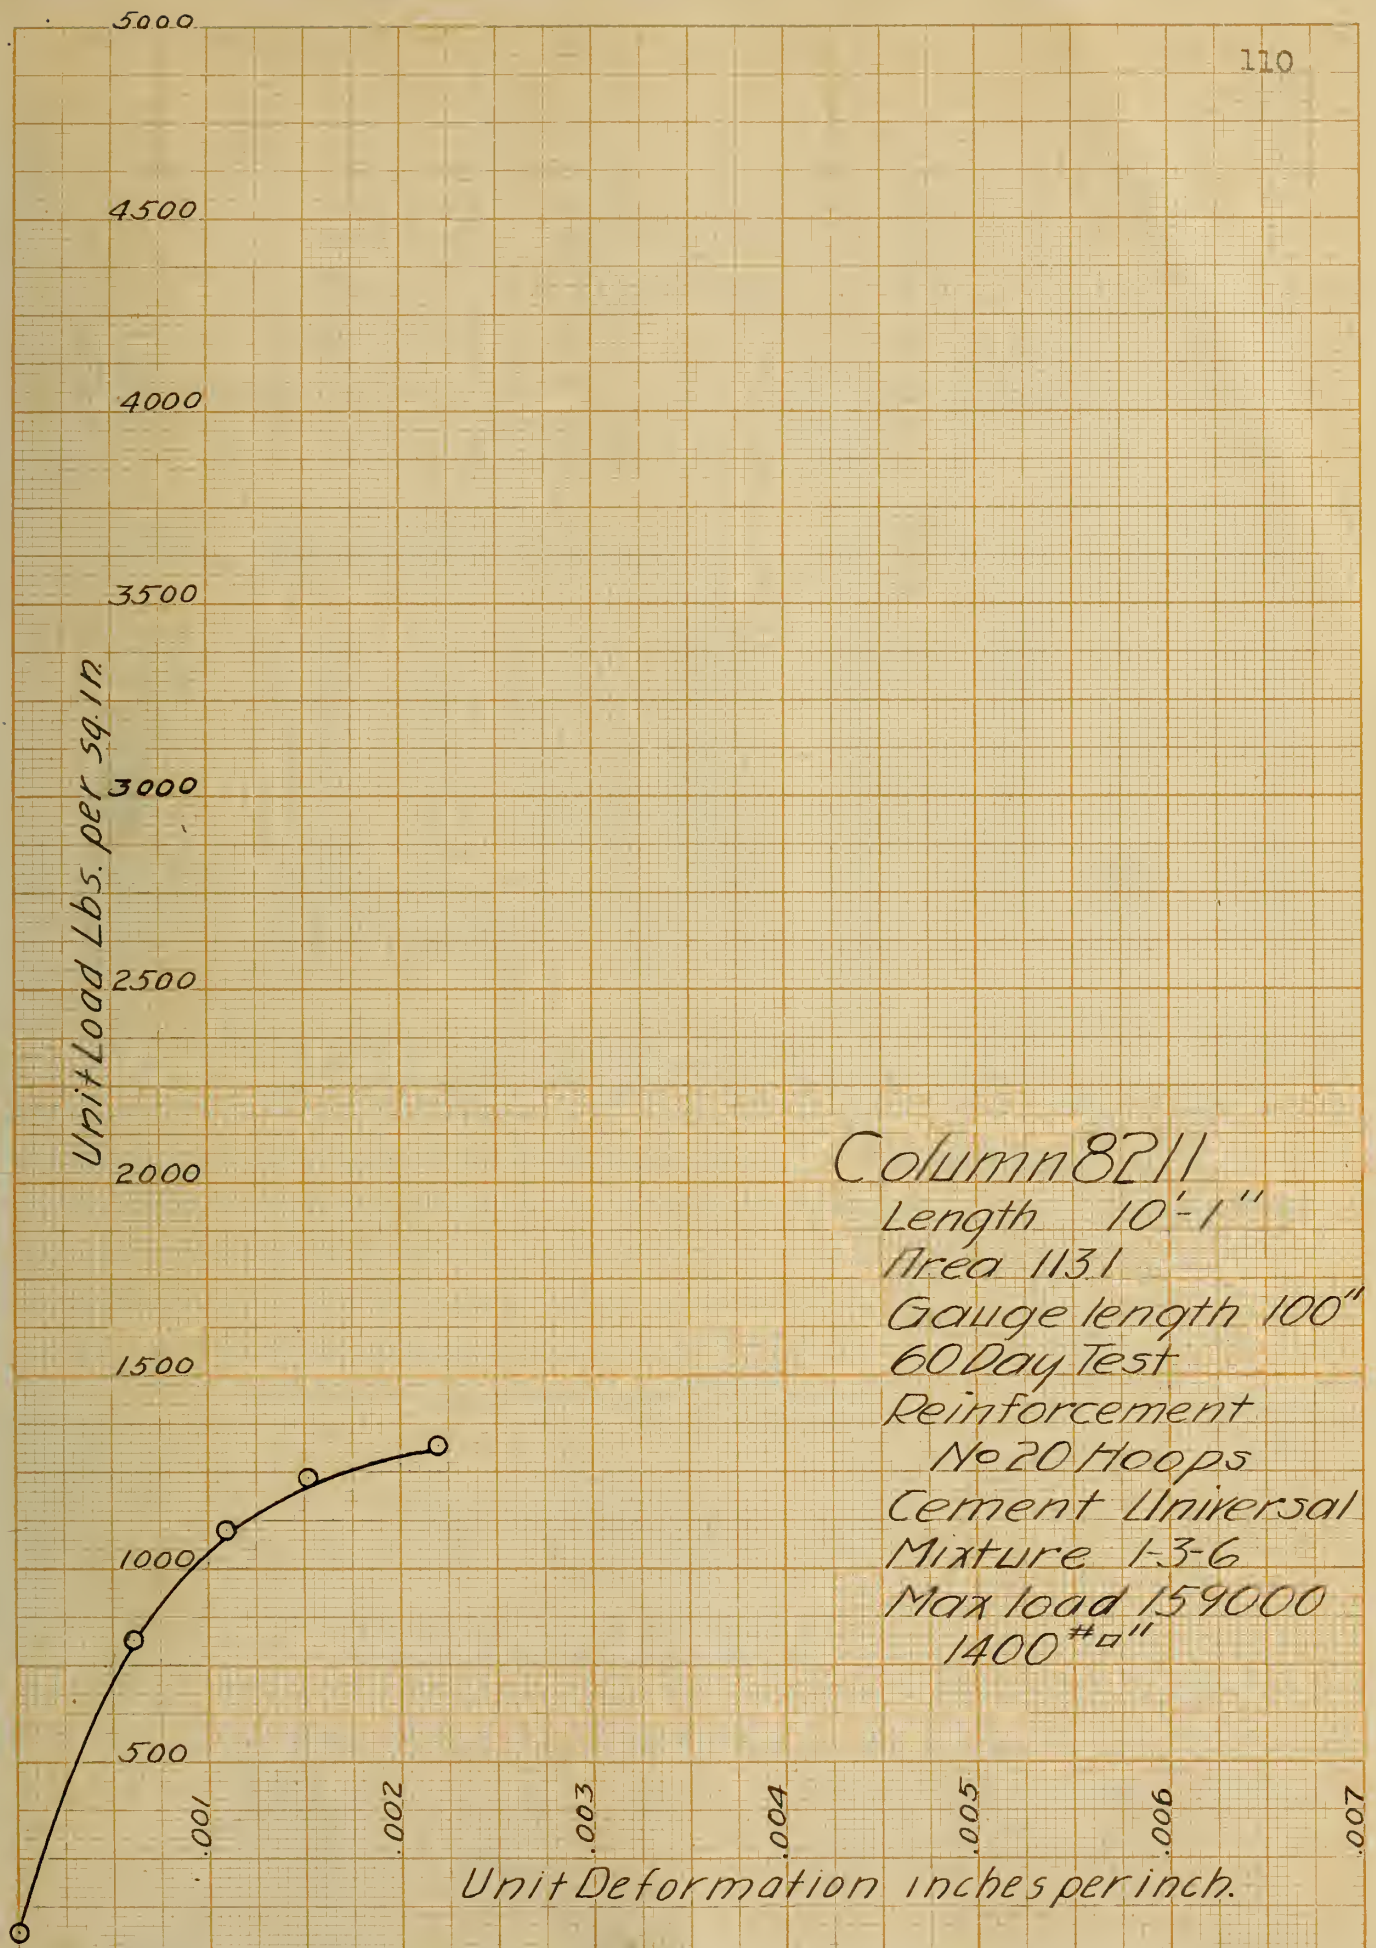 5000
110
4500
4000
3500
3000
2500
2000
1500
1000
500
Unit Load Lbs. per sq. in.
Column 8211
Length 10'-1"
Area 113.1
Gauge length 100"
60 Day Test
Reinforcement
No 20 Hoops
Cement Universal
Mixture 1-3-6
Max load 159000
1400 #□"
.001 .002 .003 .004 .005 .006 .007
Unit Deformation inches per inch.